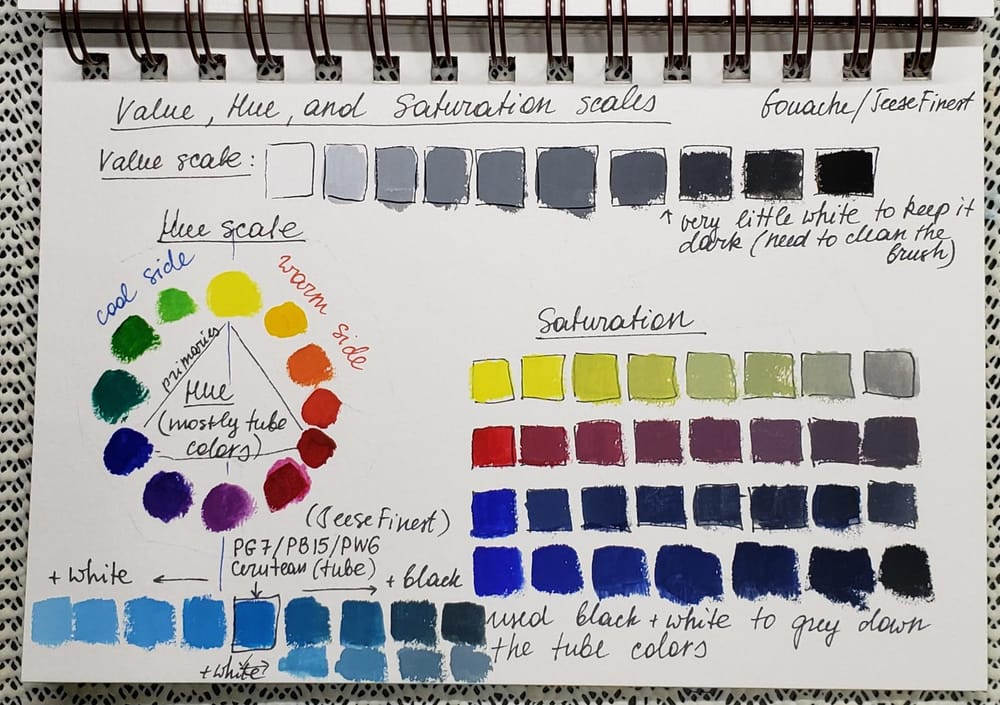 Value, Hue, and Saturation scales
Gouache/JeeseFinest
Value scale:
↑ very little white to keep it
dark (need to clean the
brush)
Hue scale
cool side
warm side
primaries
Hue
(mostly tube
colors)
Saturation
(JeeseFinest)
PG7/PB15/PW6
Cerulean (tube)
+ white ←
→ + black
+white →
used black + white to grey down
the tube colors